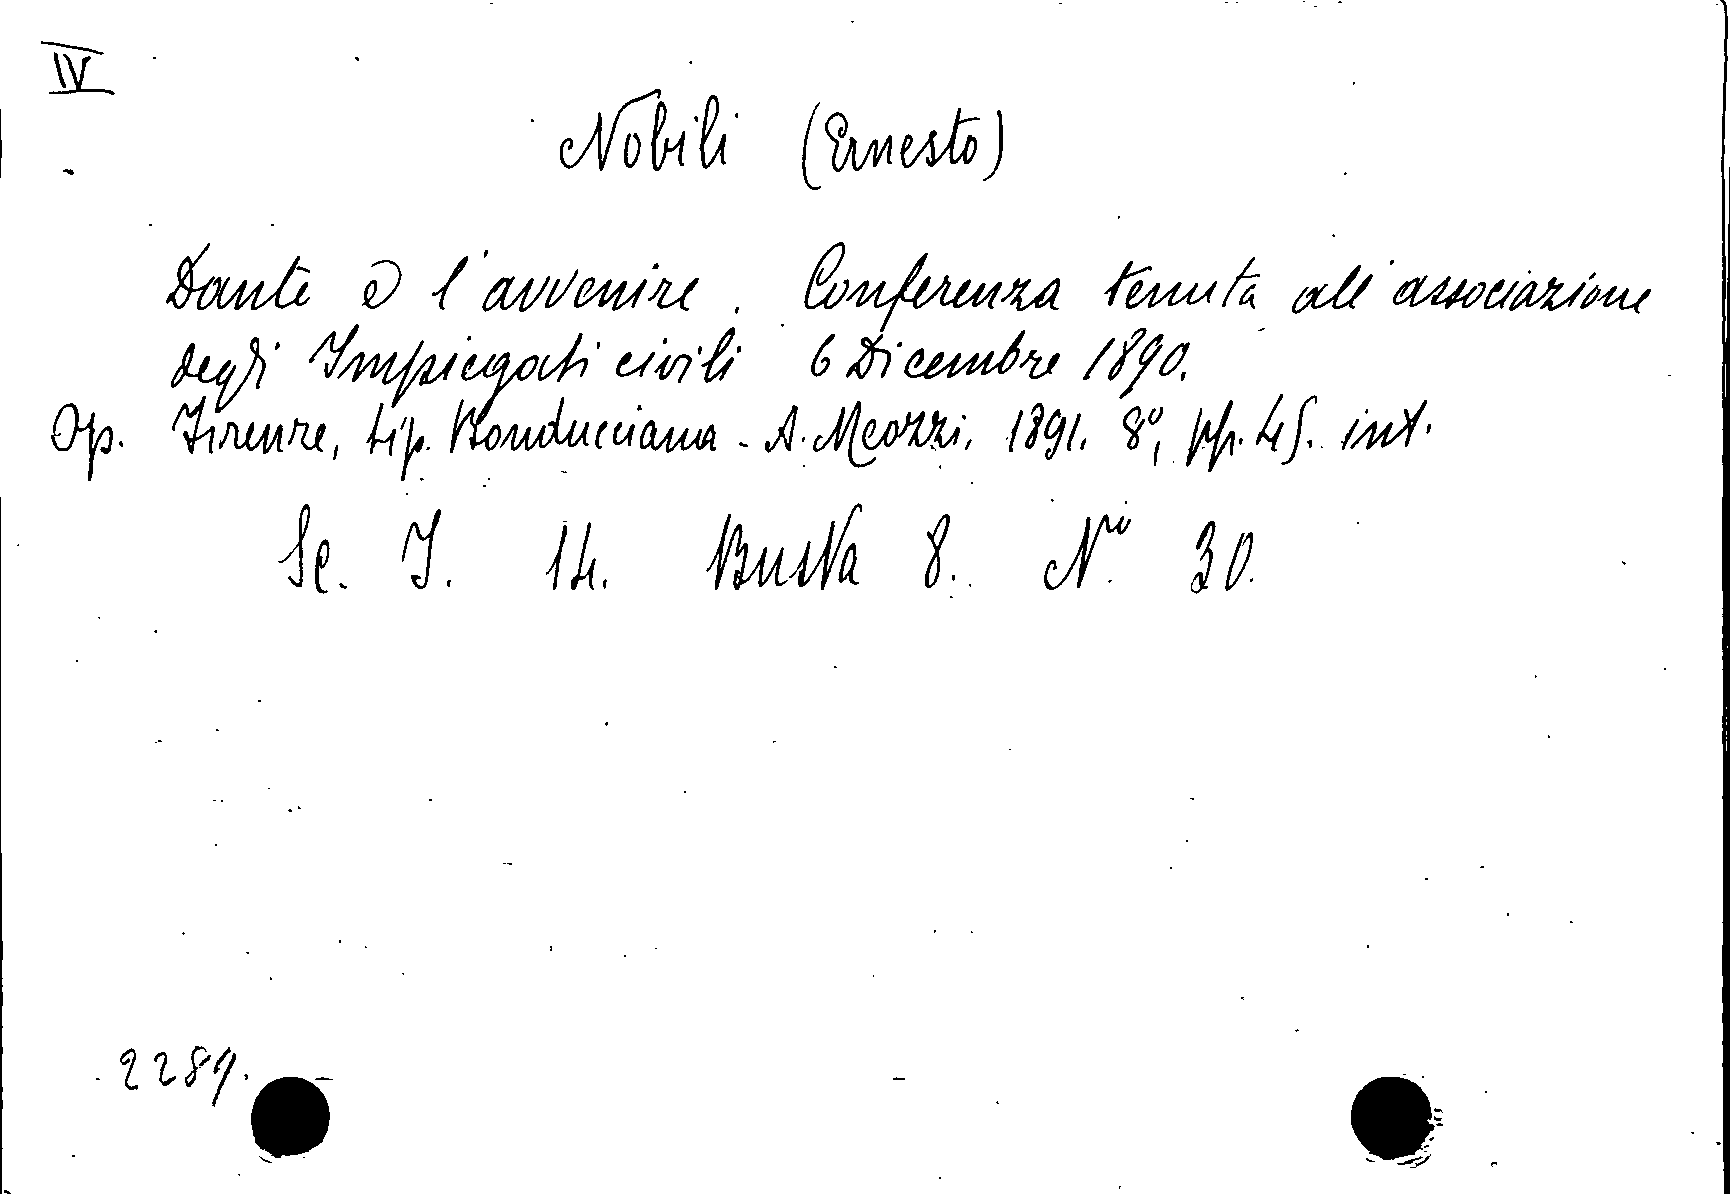 IV
Nobili (Ernesto)
Dante e l'avvenire. Conferenza tenuta all'associazione
degli Impiegati civili 6 Dicembre 1890.
Op. Firenze, tip. Bonducciana - A. Meozzi, 1891. 8º, pp. 45. int.
Sc. I. 14. Busta 8. Nº 30.
2289.